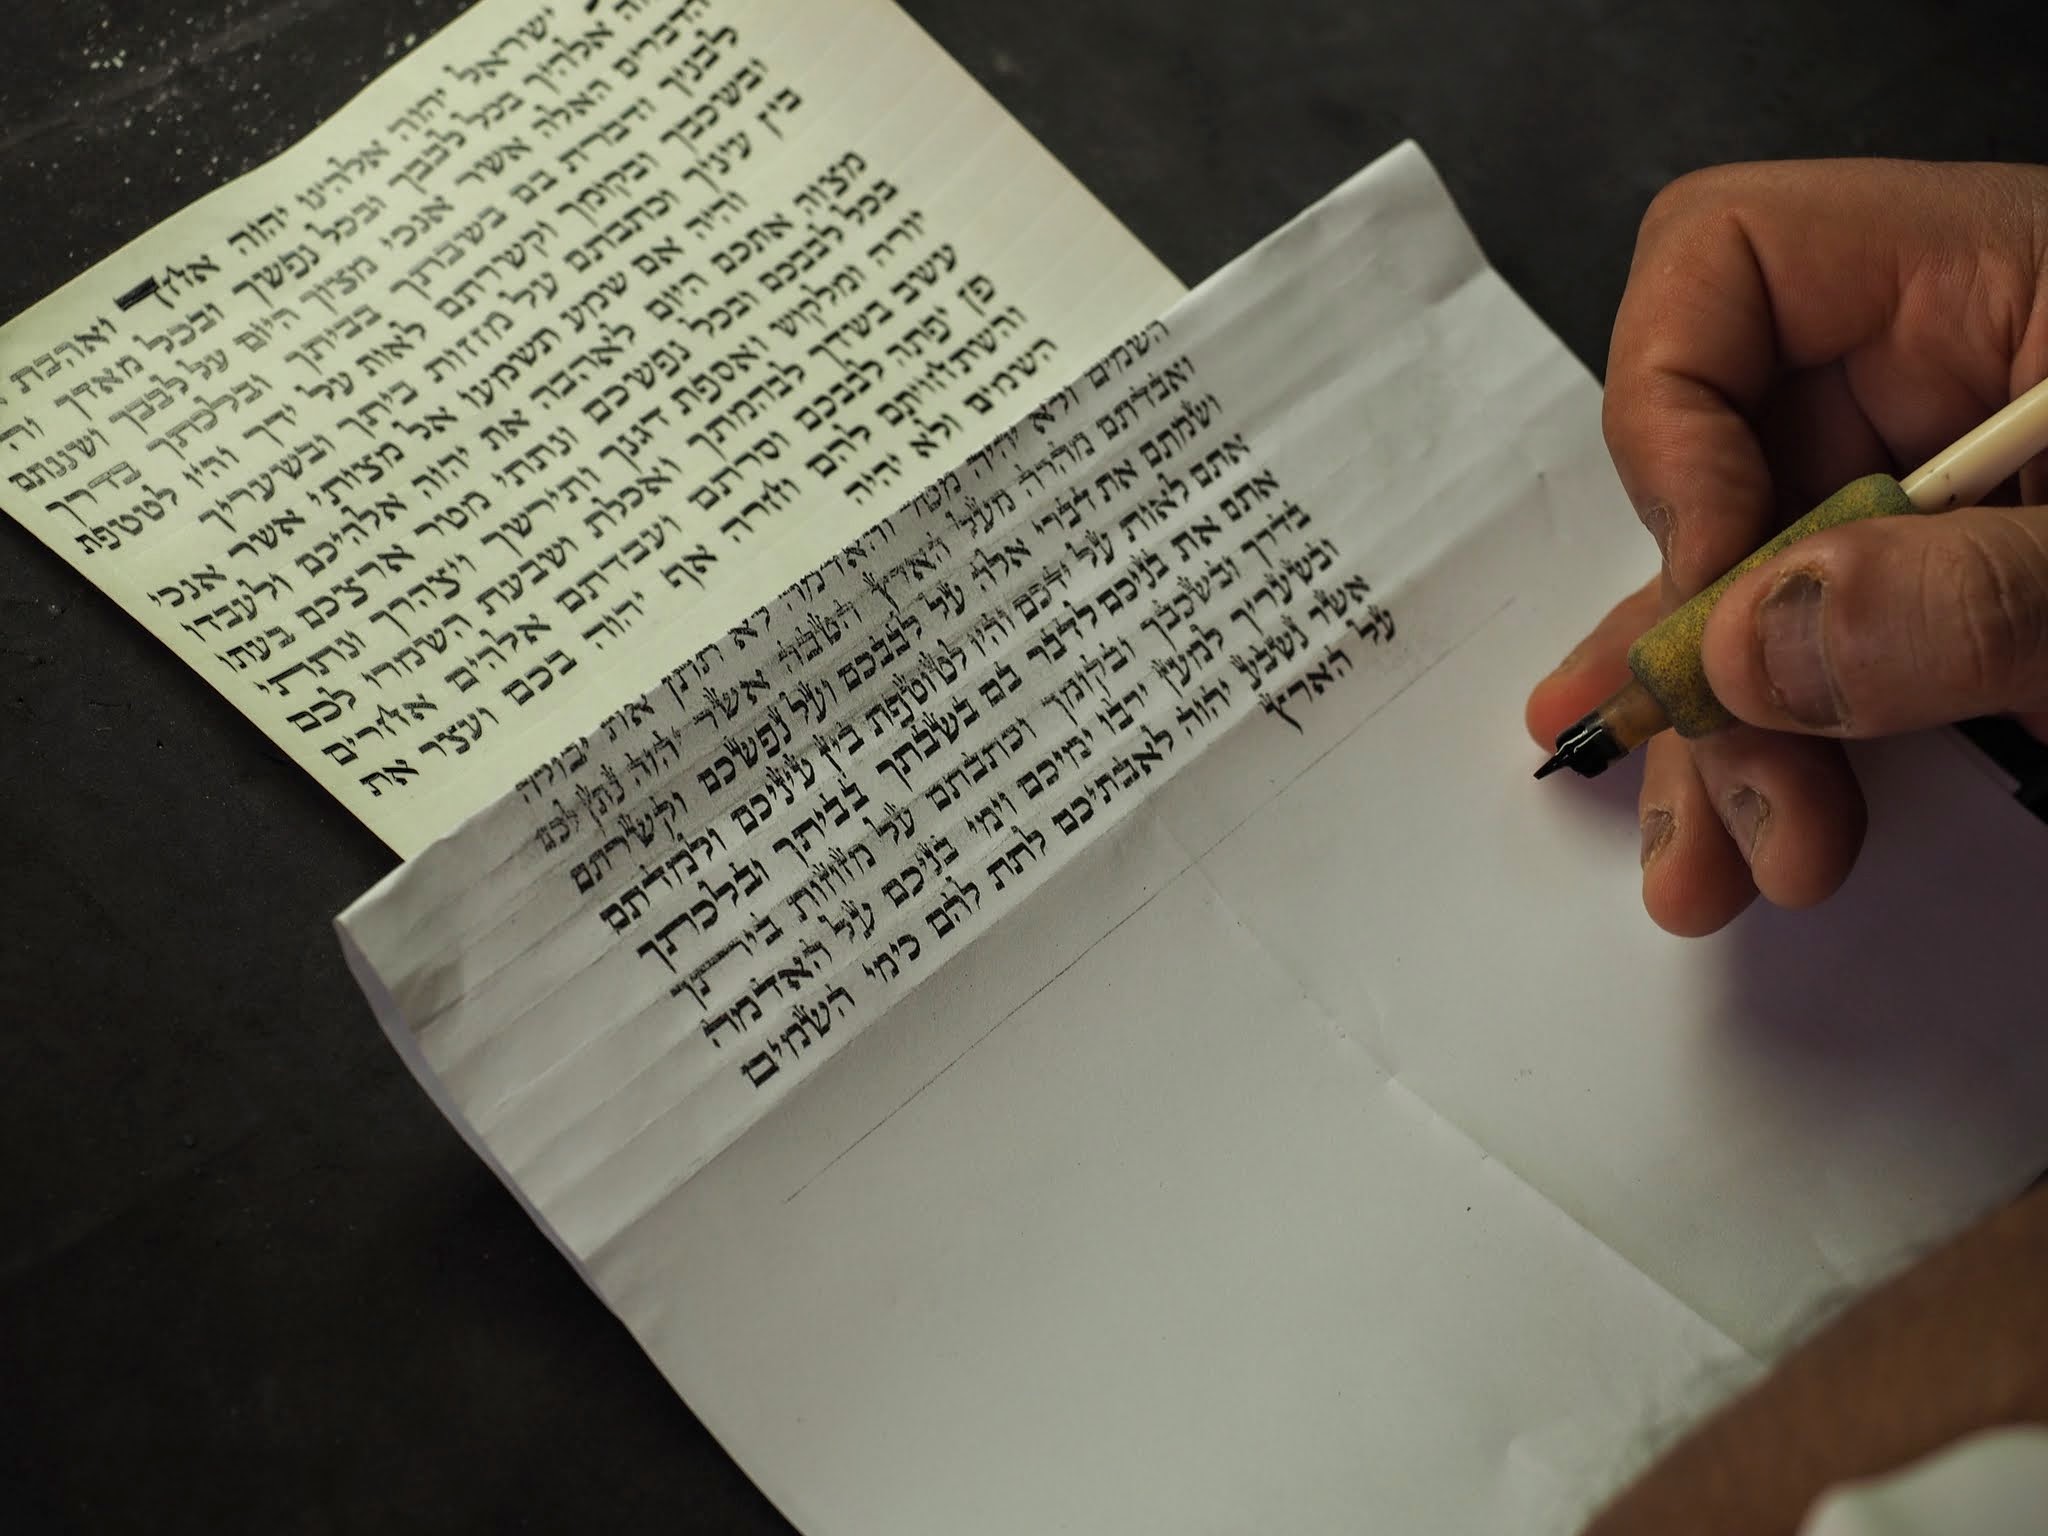 ישראל יהוה אלהינו יהוה אחד ואהבת
אלהיך בכל לבבך ובכל נפשך ובכל מאדך
הדברים האלה אשר אנכי מצוך היום על לבבך ושננתם
לבניך ודברת בם בשבתך בביתך ובלכתך בדרך
ובשכבך ובקומך וקשרתם לאות על ידך והיו לטטפת
בין עיניך וכתבתם על מזזות ביתך ובשעריך
והיה אם שמע תשמעו אל מצותי אשר אנכי
מצוה אתכם היום לאהבה את יהוה אלהיכם ולעבדו
בכל לבבכם ובכל נפשכם ונתתי מטר ארצכם בעתו
יורה ומלקוש ואספת דגנך ותירשך ויצהרך ונתתי
עשב בשדך לבהמתך ואכלת ושבעת השמרו לכם
פן יפתה לבבכם וסרתם ועבדתם אלהים אחרים
והשתחויתם להם וחרה אף יהוה בכם ועצר את
השמים ולא יהיה
השמים ולא יהיה מטר והאדמה לא תתן את יבולה
ואבדתם מהרה מעל הארץ הטבה אשר יהוה נתן לכם
ושמתם את דברי אלה על לבבכם ועל נפשכם וקשרתם
אתם לאות על ידכם והיו לטוטפת בין עיניכם ולמדתם
אתם את בניכם לדבר בם בשבתך בביתך ובלכתך
בדרך ובשכבך ובקומך וכתבתם על מזוזות ביתך
ובשעריך למען ירבו ימיכם וימי בניכם על האדמה
אשר נשבע יהוה לאבתיכם לתת להם כימי השמים
על הארץ